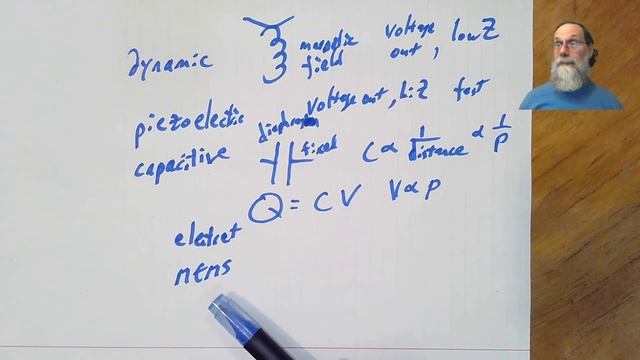 dynamic magnetic field voltage out, low Z
piezoelectric voltage out, hi Z fast
capacitive diaphragm fixed C ∝ 1/distance ∝ 1/P
Q = CV V ∝ P
electret
MEMS